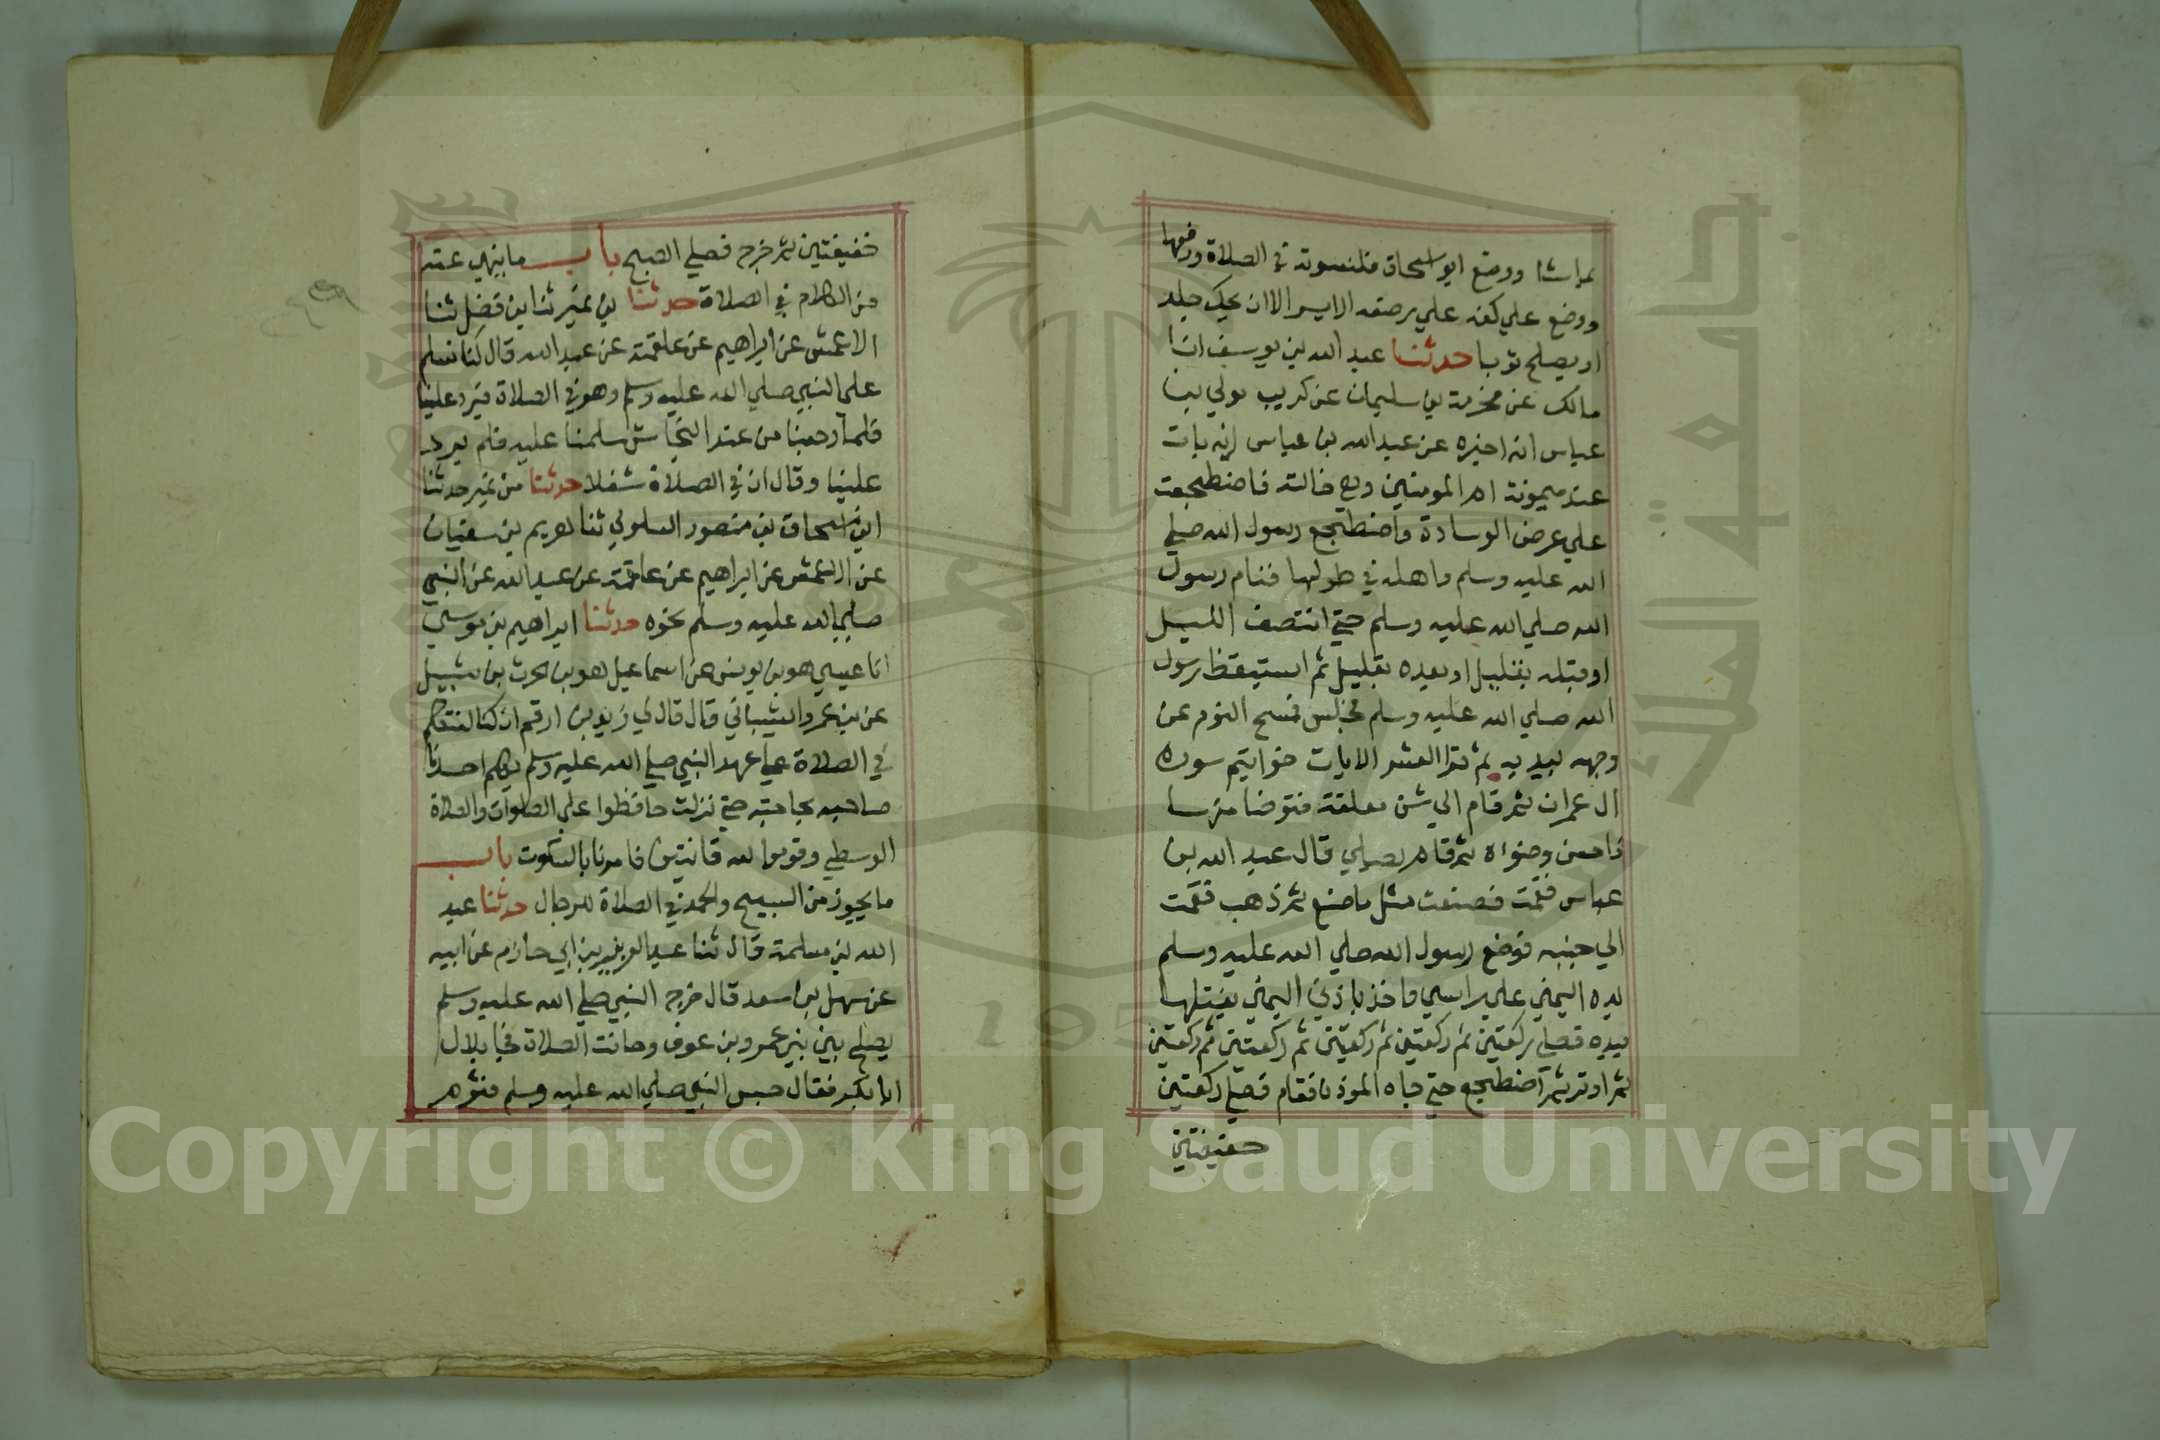 بماشا ووضع ابو اسحاق قلنسوته في الصلاة ورفعها
ووضع علي كفه علي رصغه الايسر الا ان يحك جلد
او يصلح ثوبا حدثنا عبد الله بن يوسف انا
مالك عن مخرمة بن سليمان عن كريب مولي بن
عباس انه اخبره عن عبد الله بن عباس انه بات
عند ميمونة ام المومنين وهي خالته فاضطجعت
علي عرض الوسادة واضطجع رسول الله صلي
الله عليه وسلم واهله في طولها فنام رسول
الله صلي الله عليه وسلم حتي انتصف الليل
او قبله بقليل او بعده بقليل ثم استيقظ رسول
الله صلي الله عليه وسلم فجلس فمسح النوم عن
وجهه بيديه ثم قرا العشر الايات خواتيم سورة
ال عمران ثم قام الي شن معلقة فتوضا منها
فاحسن وضواه ثم قام يصلي قال عبد الله بن
عباس فقمت فصنعت مثل ما صنع ثم ذهبت فقمت
الي جنبه فوضع رسول الله صلي الله عليه وسلم
يده اليمني علي راسي واخذ باذني اليمني يفتلها
بيده فصلي ركعتين ثم ركعتين ثم ركعتين ثم ركعتين ثم ركعتين
ثم اوتر ثم اضطجع حتي جاه الموذن فقام فصلي ركعتين
خفيفتين
خفيفتين ثم خرج فصلي الصبح باب ما ينهي عنه
من الكلام في الصلاة حدثنا بن نمير ثنا ابن فضل ثنا
الاعمش عن ابراهيم عن علقمة عن عبد الله قال كنا نسلم
علي النبي صلي الله عليه وسلم وهو في الصلاة فيرد علينا
فلما رجعنا من عند النجاشي سلمنا عليه فلم يرد
علينا وقال ان في الصلاة شغلا حدثنا بن نمير حدثنا
ابن اسحاق بن منصور السلولي ثنا هريم بن سفيان
عن الاعمش عن ابراهيم عن علقمة عن عبد الله عن النبي
صلي الله عليه وسلم نحوه حدثنا ابراهيم بن موسي
انا عيسي هو بن يونس عن اسماعيل هو بن الحرث بن شبيل
عن بن عمرو الشيباني قال قال لي زيد بن ارقم ان كنا لنتكلم
في الصلاة علي عهد النبي صلي الله عليه وسلم يكلم احدنا
صاحبه بحاجته حتي نزلت حافظوا علي الصلوات والصلاة
الوسطي وقوموا لله قانتين فامرنا بالسكوت باب
ما يجوز من التسبيح والحمد في الصلاة للرجال حدثنا عبد
الله بن مسلمة قال ثنا عبد العزيز بن ابي حازم عن ابيه
عن سهل بن سعد قال خرج النبي صلي الله عليه وسلم
يصلح بين بني عمرو بن عوف وحانت الصلاة فجا بلال
ابا بكر فقال حبس النبي صلي الله عليه وسلم فتوم
Copyright © King Saud University
جامعة الملك سعود
1957